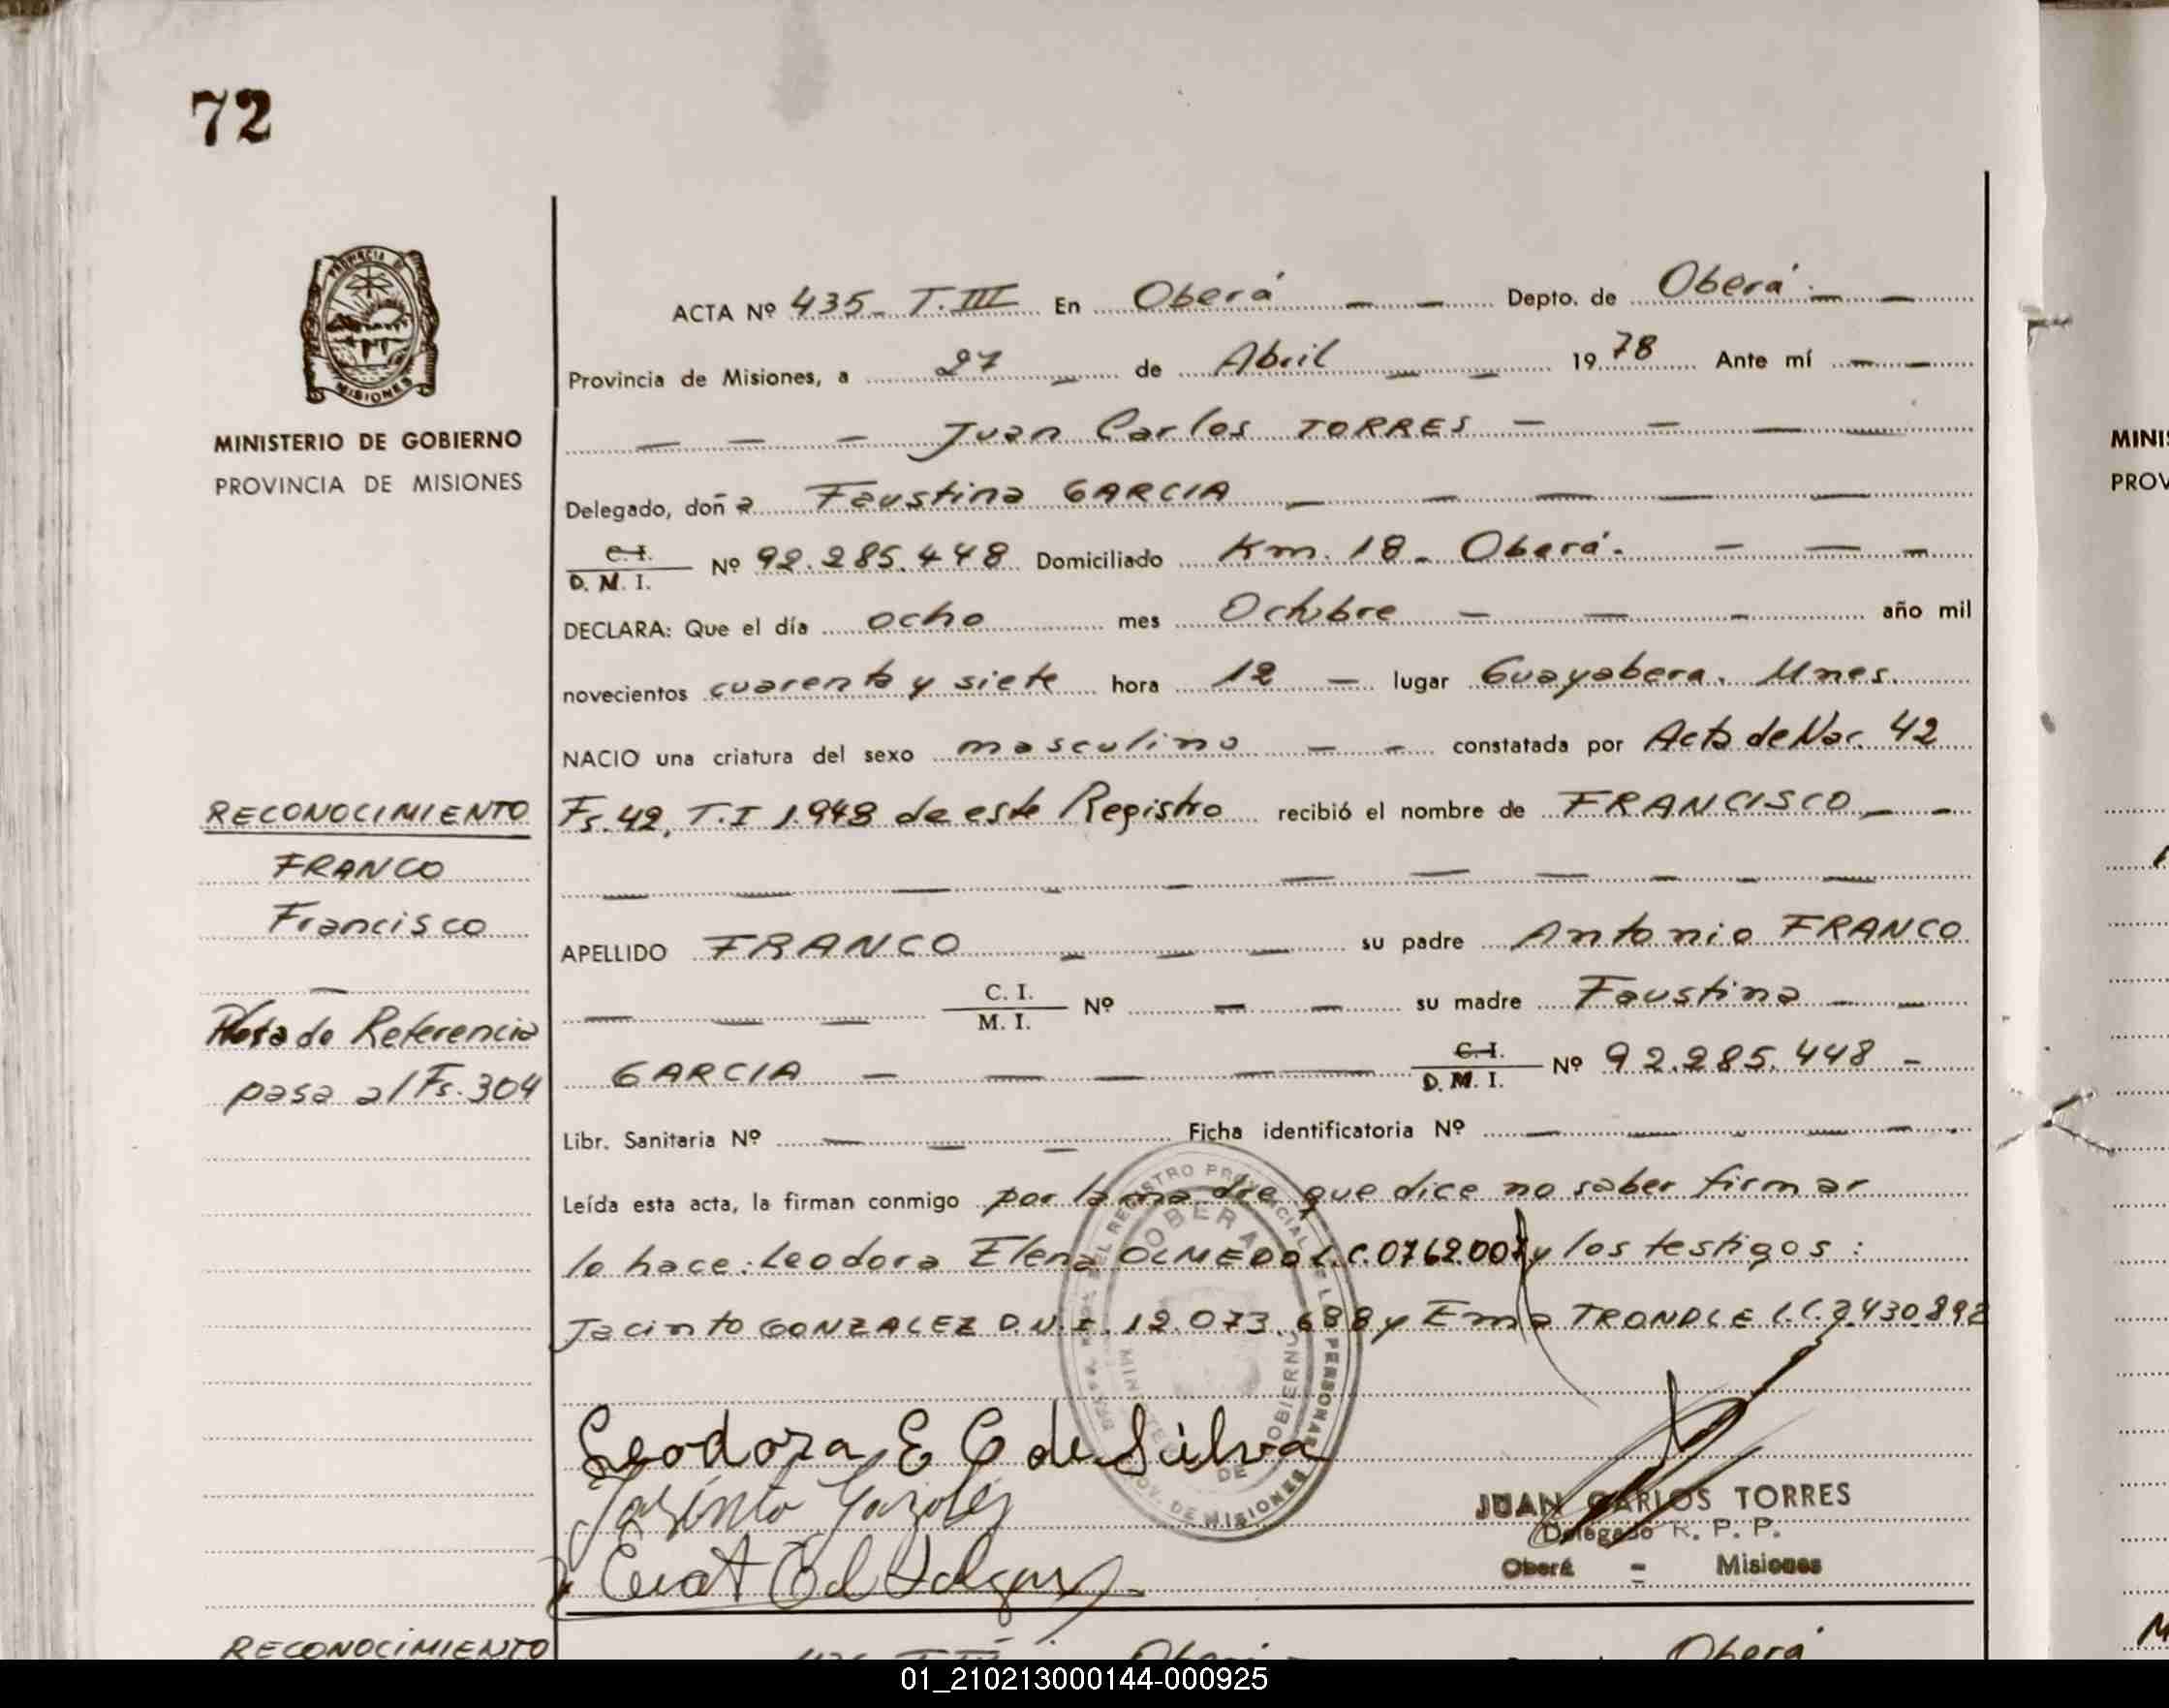 72
PROVINCIA DE
MISIONES
MINISTERIO DE GOBIERNO
PROVINCIA DE MISIONES
ACTA Nº 435_ T. III En Oberá — — Depto. de Oberá — —
Provincia de Misiones, a 27 — de Abril — — 1978 Ante mí — —
— — — Juan Carlos TORRES — — — —
Delegado, doña Faustina GARCIA — — — — —
C. I. / D. M. I. Nº 92.285.448 Domiciliado Km. 18_ Oberá. — — —
DECLARA: Que el día ocho mes Octubre — — — año mil
novecientos cuarenta y siete hora 12 — lugar Guayabera. Mnes.
NACIO una criatura del sexo masculino — — constatada por Acta de Nac. 42
Fs. 42, T. I 1.948 de este Registro recibió el nombre de FRANCISCO — —
APELLIDO FRANCO — — — su padre Antonio FRANCO
— — — C. I. / M. I. Nº — — su madre Faustina — —
GARCIA — — — — — C. I. / D. M. I. Nº 92.285.448 —
Libr. Sanitaria Nº — — — Ficha identificatoria Nº — — — — —
Leída esta acta, la firman conmigo por la madre que dice no saber firmar
lo hace: Leodora Elena OLMEDO L.C. 0762.007 y los testigos:
Jacinto GONZALEZ D.N.I. 12.073.688 y Ema TRONDLE L.C. 2.430.892
RECONOCIMIENTO
FRANCO
Francisco
—
Nota de Referencia
pasa al Fs. 304
Leodora E O de Silva
Jasinto
DEL REGISTRO PROVINCIAL DE L PERSONAS
OBERA
MINISTE DE GOBIERNO
PROV. DE MISIONES
JUAN CARLOS TORRES
Delegado R. P. P.
Oberá - Misiones
RECONOCIMIENTO
Oberá
MINIS
PROV
01_210213000144-000925